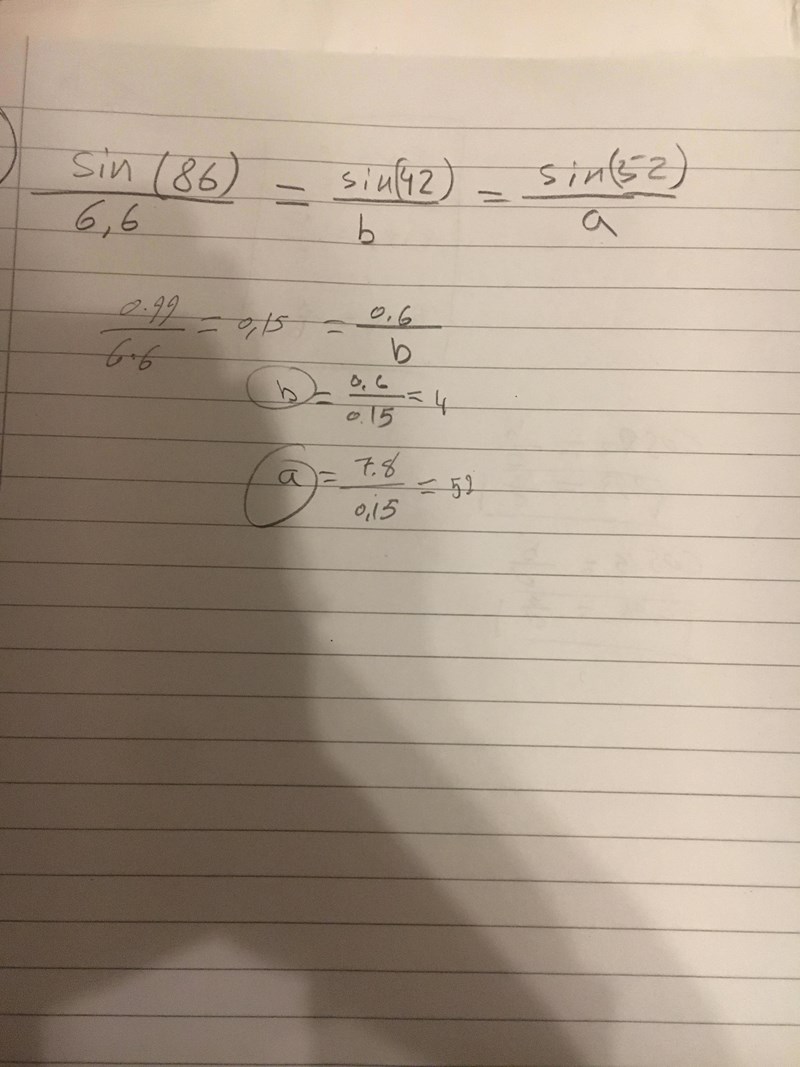 sin(86)/6,6 = sin(42)/b = sin(52)/a
0.99/6.6 = 0,15 = 0.6/b
b = 0,6/0.15 = 4
a = 7.8/0,15 = 52